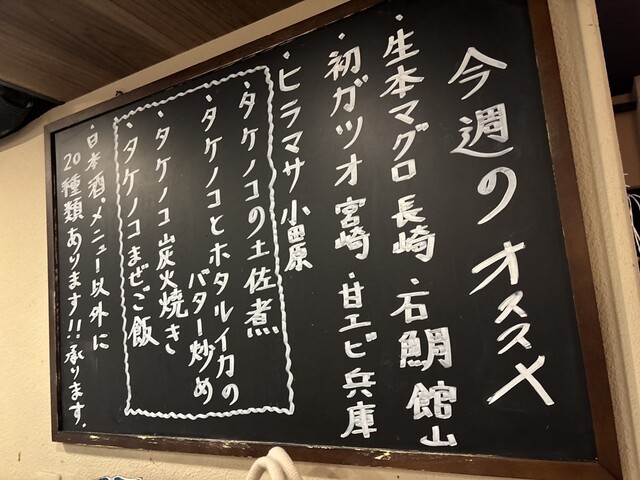 今週のオススメ
・生本マグロ 長崎 ・石鯛 館山
・初ガツオ 宮崎 ・甘エビ 兵庫
・ヒラマサ 小田原
・タケノコの土佐煮
・タケノコとホタルイカの
バター炒め
・タケノコ炭火焼き
・タケノコまぜご飯
・日本酒、メニュー以外に
20種類あります!!承ります。